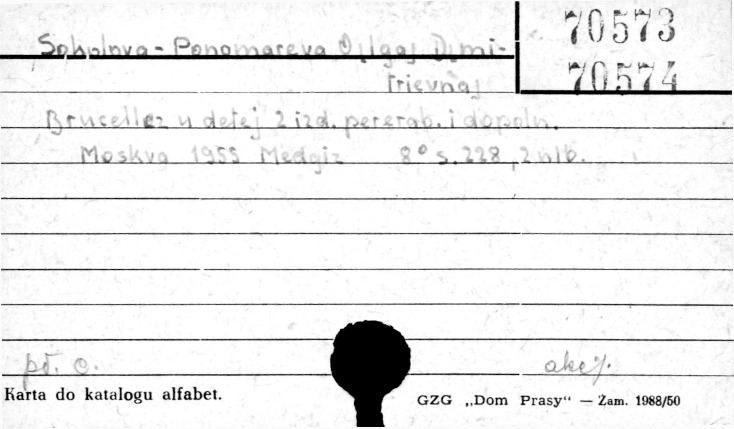 70573
Sokolova - Ponomareva Ojlgaj Dymi-
trievnaj
70574
Brucellez u detej 2 izd. pererab. i dopoln.
Moskva 1955 Medgiz 8° s. 228, 2 nlb.
pł. c.
akc.
Karta do katalogu alfabet.
GZG „Dom Prasy“ — Zam. 1988/50